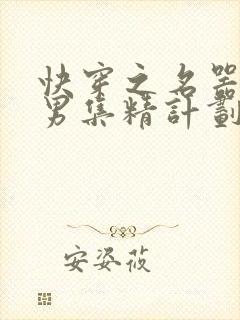 快穿之名器
男集精計劃
安姿莜